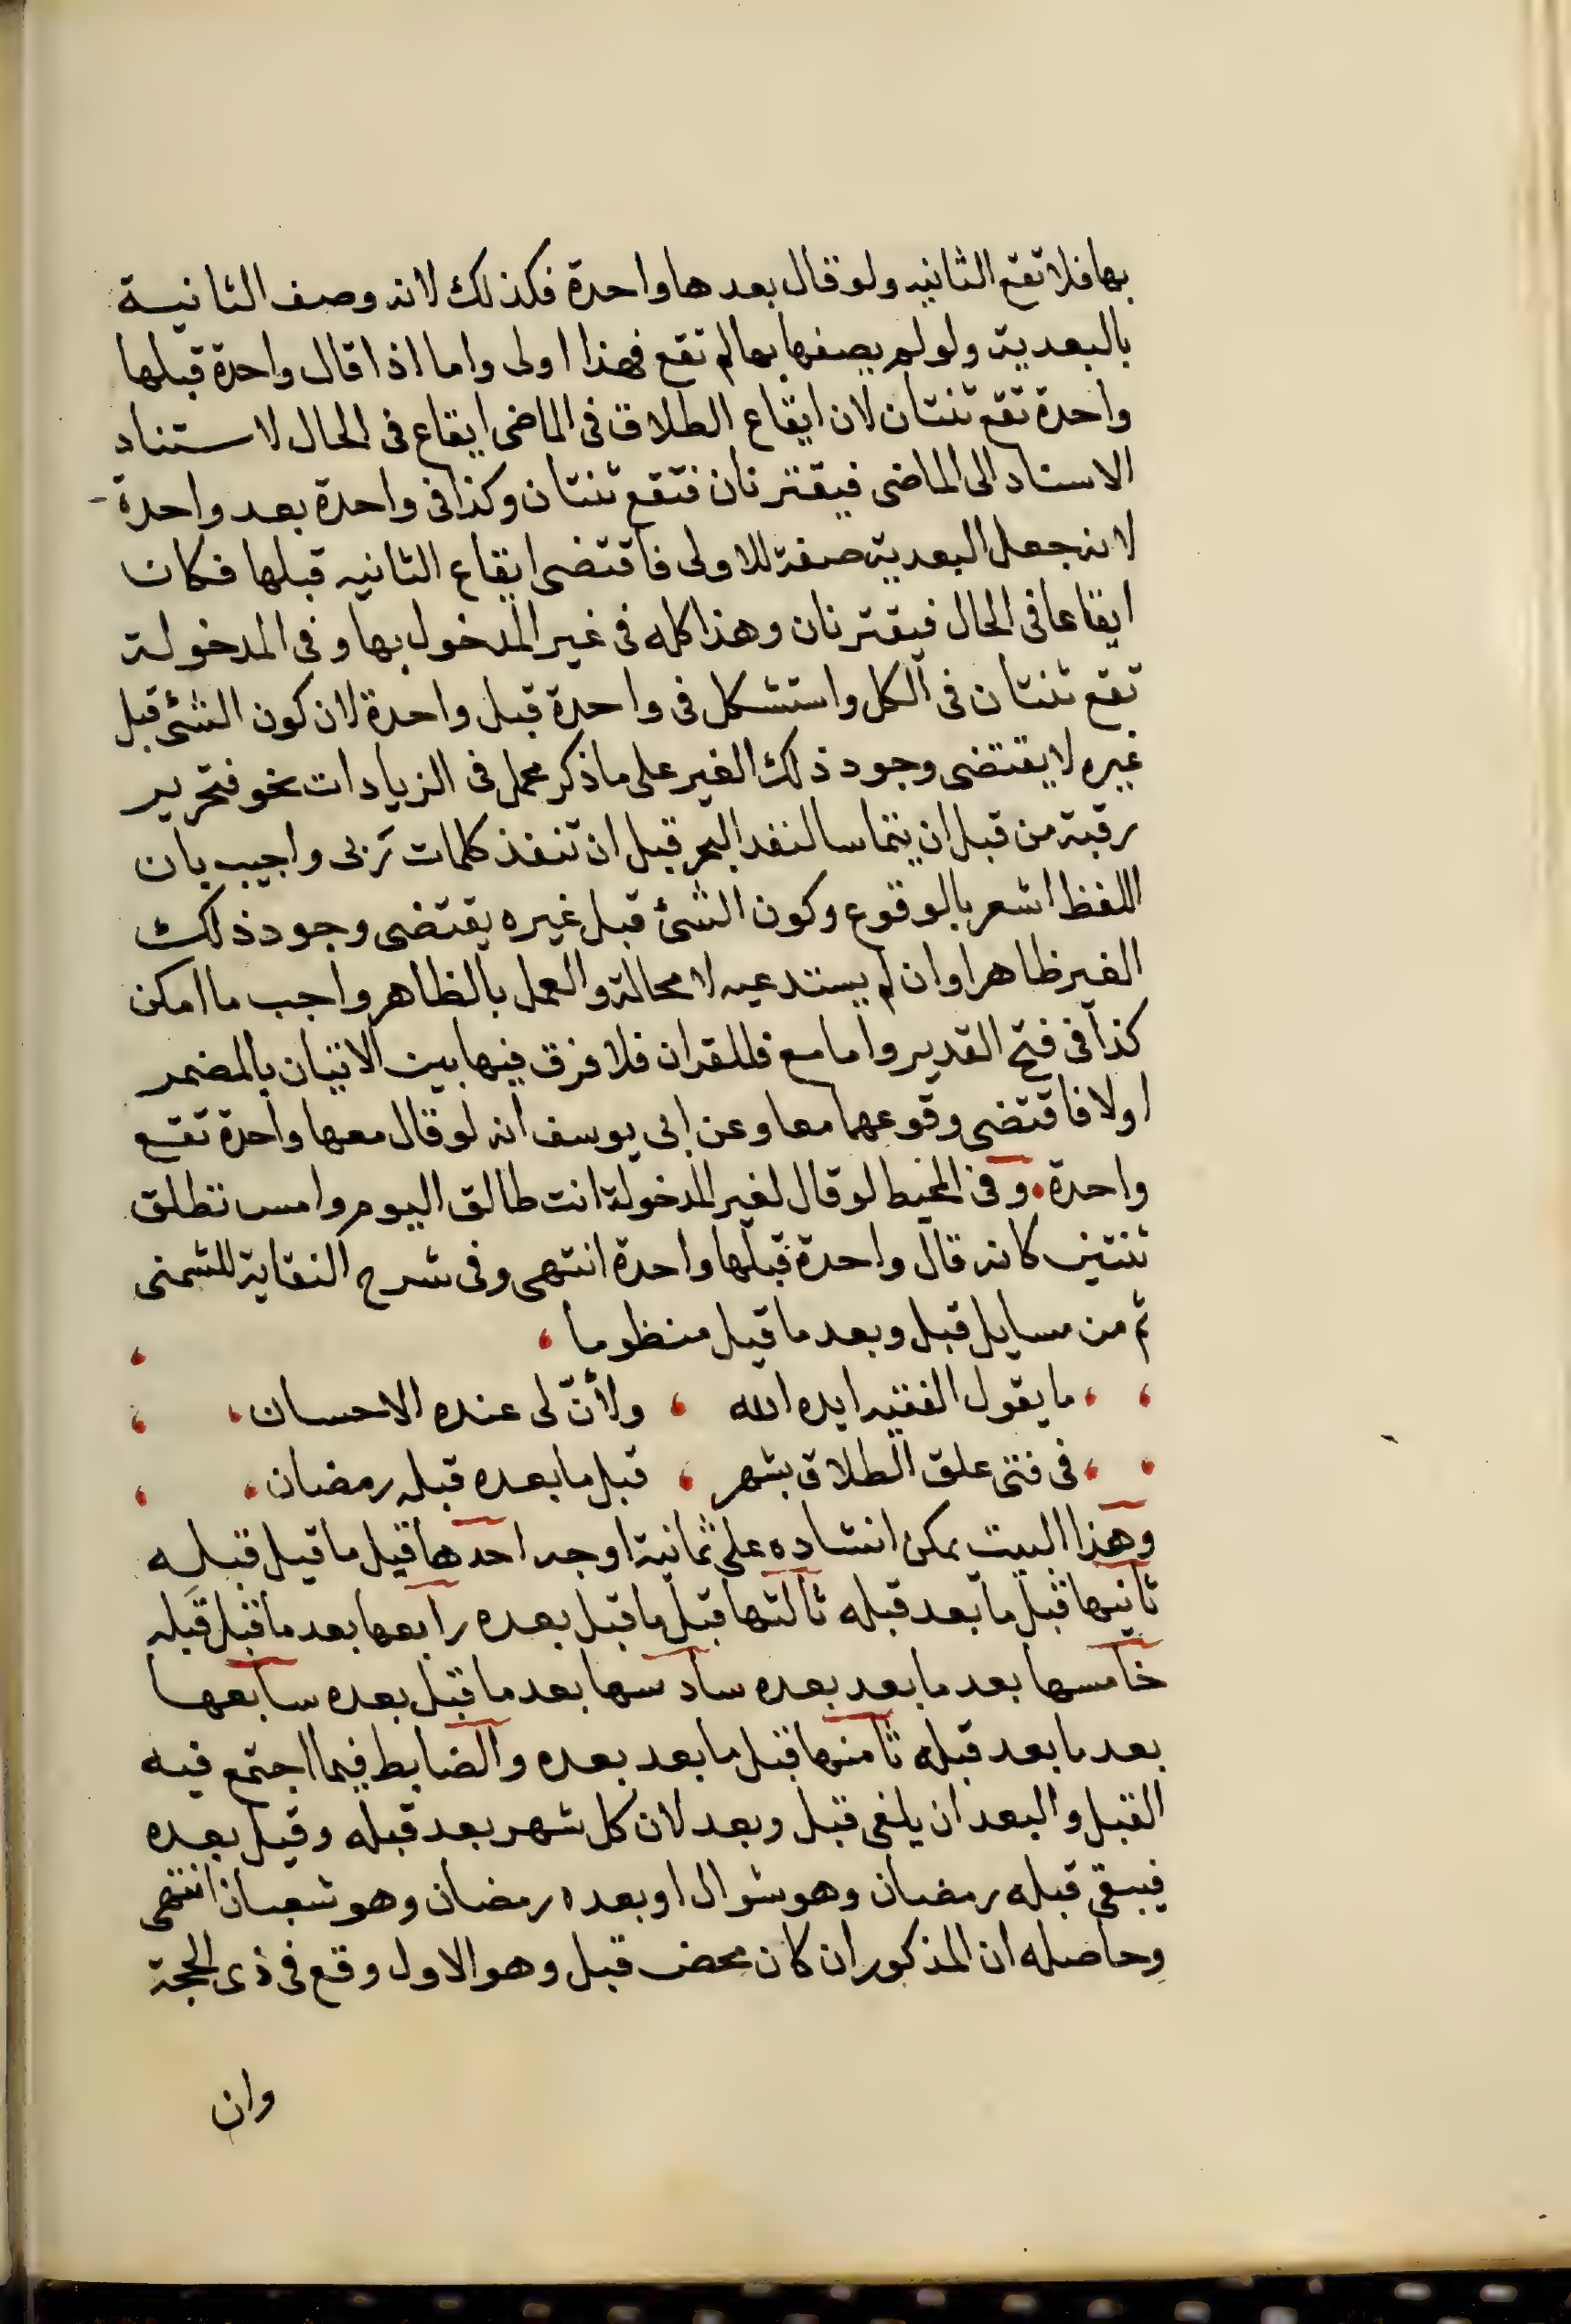 بها فلا تقع الثانيه ولو قال بعدها واحدة فكذلك لانه وصف الثانية
بالبعدية ولو لم يصفها بها لم تقع فهذا اولى واما اذا قال واحدة قبلها
واحدة تقع ثنتان لان ايقاع الطلاق فى الماضى ايقاع فى الحال لاستناد
الاسناد الى الماضى فيقترنان فتقع ثنتان وكذا فى واحدة بعد واحدة
لانه جعل البعدية صفة للاولى فاقتضى ايقاع الثانيه قبلها فكان
ايقاعا فى الحال فيقترنان وهذا كله فى غير المدخول بها وفى المدخولة
تقع ثنتان فى الكل واستشكل فى واحدة قبل واحدة لان كون الشئ قبل
غيره لا يقتضى وجود ذلك الغير على ما ذكر محمل فى الزيادات نحو فتحرير
رقبة من قبل ان يتماسا لنفد البحر قبل ان تنفذ كلمات ربى واجيب بان
اللفظ اشعر بالوقوع وكون الشئ قبل غيره يقتضى وجود ذلك
الغير ظاهرا وان لم يستدعيه لا محالة والعمل بالظاهر واجب ما امكن
كذا فى فتح القدير واما مع فللقران فلا فرق فيها بين الاتيان بالمضمر
اولا فاقتضى وقوعهما معا وعن ابى يوسف انه لو قال معها واحدة تقع
واحدة وفى المحيط لو قال لغير المدخولة انت طالق اليوم وامس تطلق
ثنتين كانه قال واحدة قبلها واحدة انتهى وفى شرح النقاية للشمنى
ثم من مسايل قبل وبعد ما قيل منظوما
ما يقول الفقيه ايده الله ولأنّ لى عنده الاحسان
فى فتى علق الطلاق بشهر قبل ما بعده قبله رمضان
وهذا البيت يمكن انشاده على ثمانية اوجه احدها قيل ما قيل قبله
ثانيها قبل ما بعد قبله ثالثها قبل ما قبل بعده رابعها بعد ما قبل قبله
خامسها بعد ما بعد بعده سادسها بعد ما قبل بعده سابعها
بعد ما بعد قبله ثامنها قبل ما بعد بعده والضابط فيما اجتمع فيه
القبل والبعد ان يلغى قبل وبعد لان كل شهر بعد قبله وقبل بعده
فيبقى قبله رمضان وهو شوال او بعده رمضان وهو شعبان انتهى
وحاصله ان المذكور ان كان محض قبل وهو الاول وقع فى ذى الحجة
وان